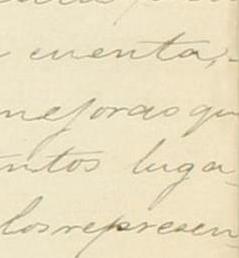 cuenta,-
mejoras qu
ntos luga-
los represen-